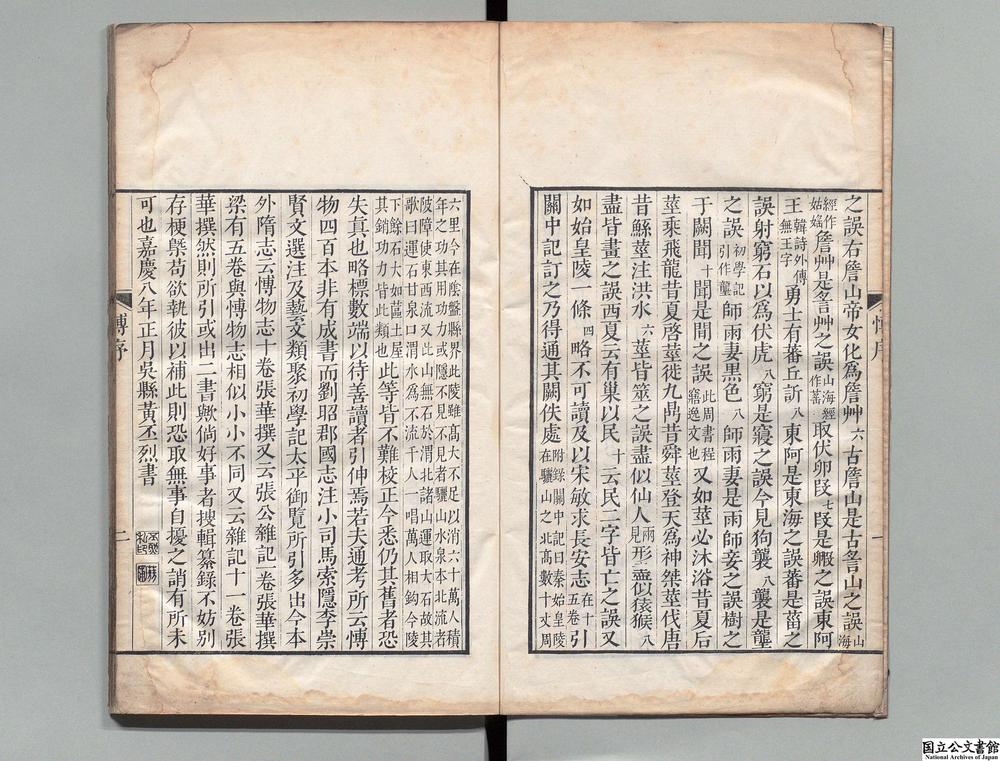 之誤右詹山帝女化爲詹艸六古詹山是古䚻山之誤山海
經作姑媱詹艸是䚻艸之誤山海經作䔄取伏卵叚七叚是毈之誤東阿
王韓詩外傳無王字勇士有蕃丘訢八東阿是東海之誤蕃是菑之
誤射窮石以爲伏虎八窮是寢之誤今見狗襲八襲是壟
之誤初學記引作壟師雨妻黑色八師雨妻是雨師妾之誤樹之
于闕聞十聞是閒之誤此周書程寤逸文也又如莖必沐浴昔夏后
莖乘飛龍昔夏啓莖徙九鼎昔舜莖登天爲神桀莖伐唐
昔鯀莖注洪水六莖皆筮之誤盡似仙人兩見形盡似猿猴八
盡皆畫之誤西夏云有巢以民十云民二字皆亡之誤又
如始皇陵一條四略不可讀及以宋敏求長安志在十五卷引
關中記訂之乃得通其闕佚處附錄關中記曰秦始皇陵在驪山之北高數十丈周
六里今在陰盤縣界此陵雖高大不足以消六十萬人積年之功其用功力或隱不見不見者驪山水泉本北流者
陂障使東西流又此山無石於渭北諸山運取大石故其歌曰運石甘泉口渭水爲不流千人一唱萬人相鉤今陵
下餘石大如𦊅土屋其銷功力皆此類也此等皆不難校正今悉仍其舊者恐
失真也略標數端以待善讀者引伸焉若夫通考所云博
物四百本非有成書而劉昭郡國志注小司馬索隱李崇
賢文選注及藝文類聚初學記太平御覽所引多出今本
外隋志云博物志十卷張華撰又云張公雜記一卷張華撰
梁有五卷與博物志相似小小不同又云雜記十一卷張
華撰然則所引或出二書歟倘好事者搜輯纂錄不妨別
存梗槩苟欲執彼以補此則恐取無事自擾之誚有所未
可也嘉慶八年正月吳縣黃丕烈書
博序
二
博序
一
国立公文書館
National Archives of Japan